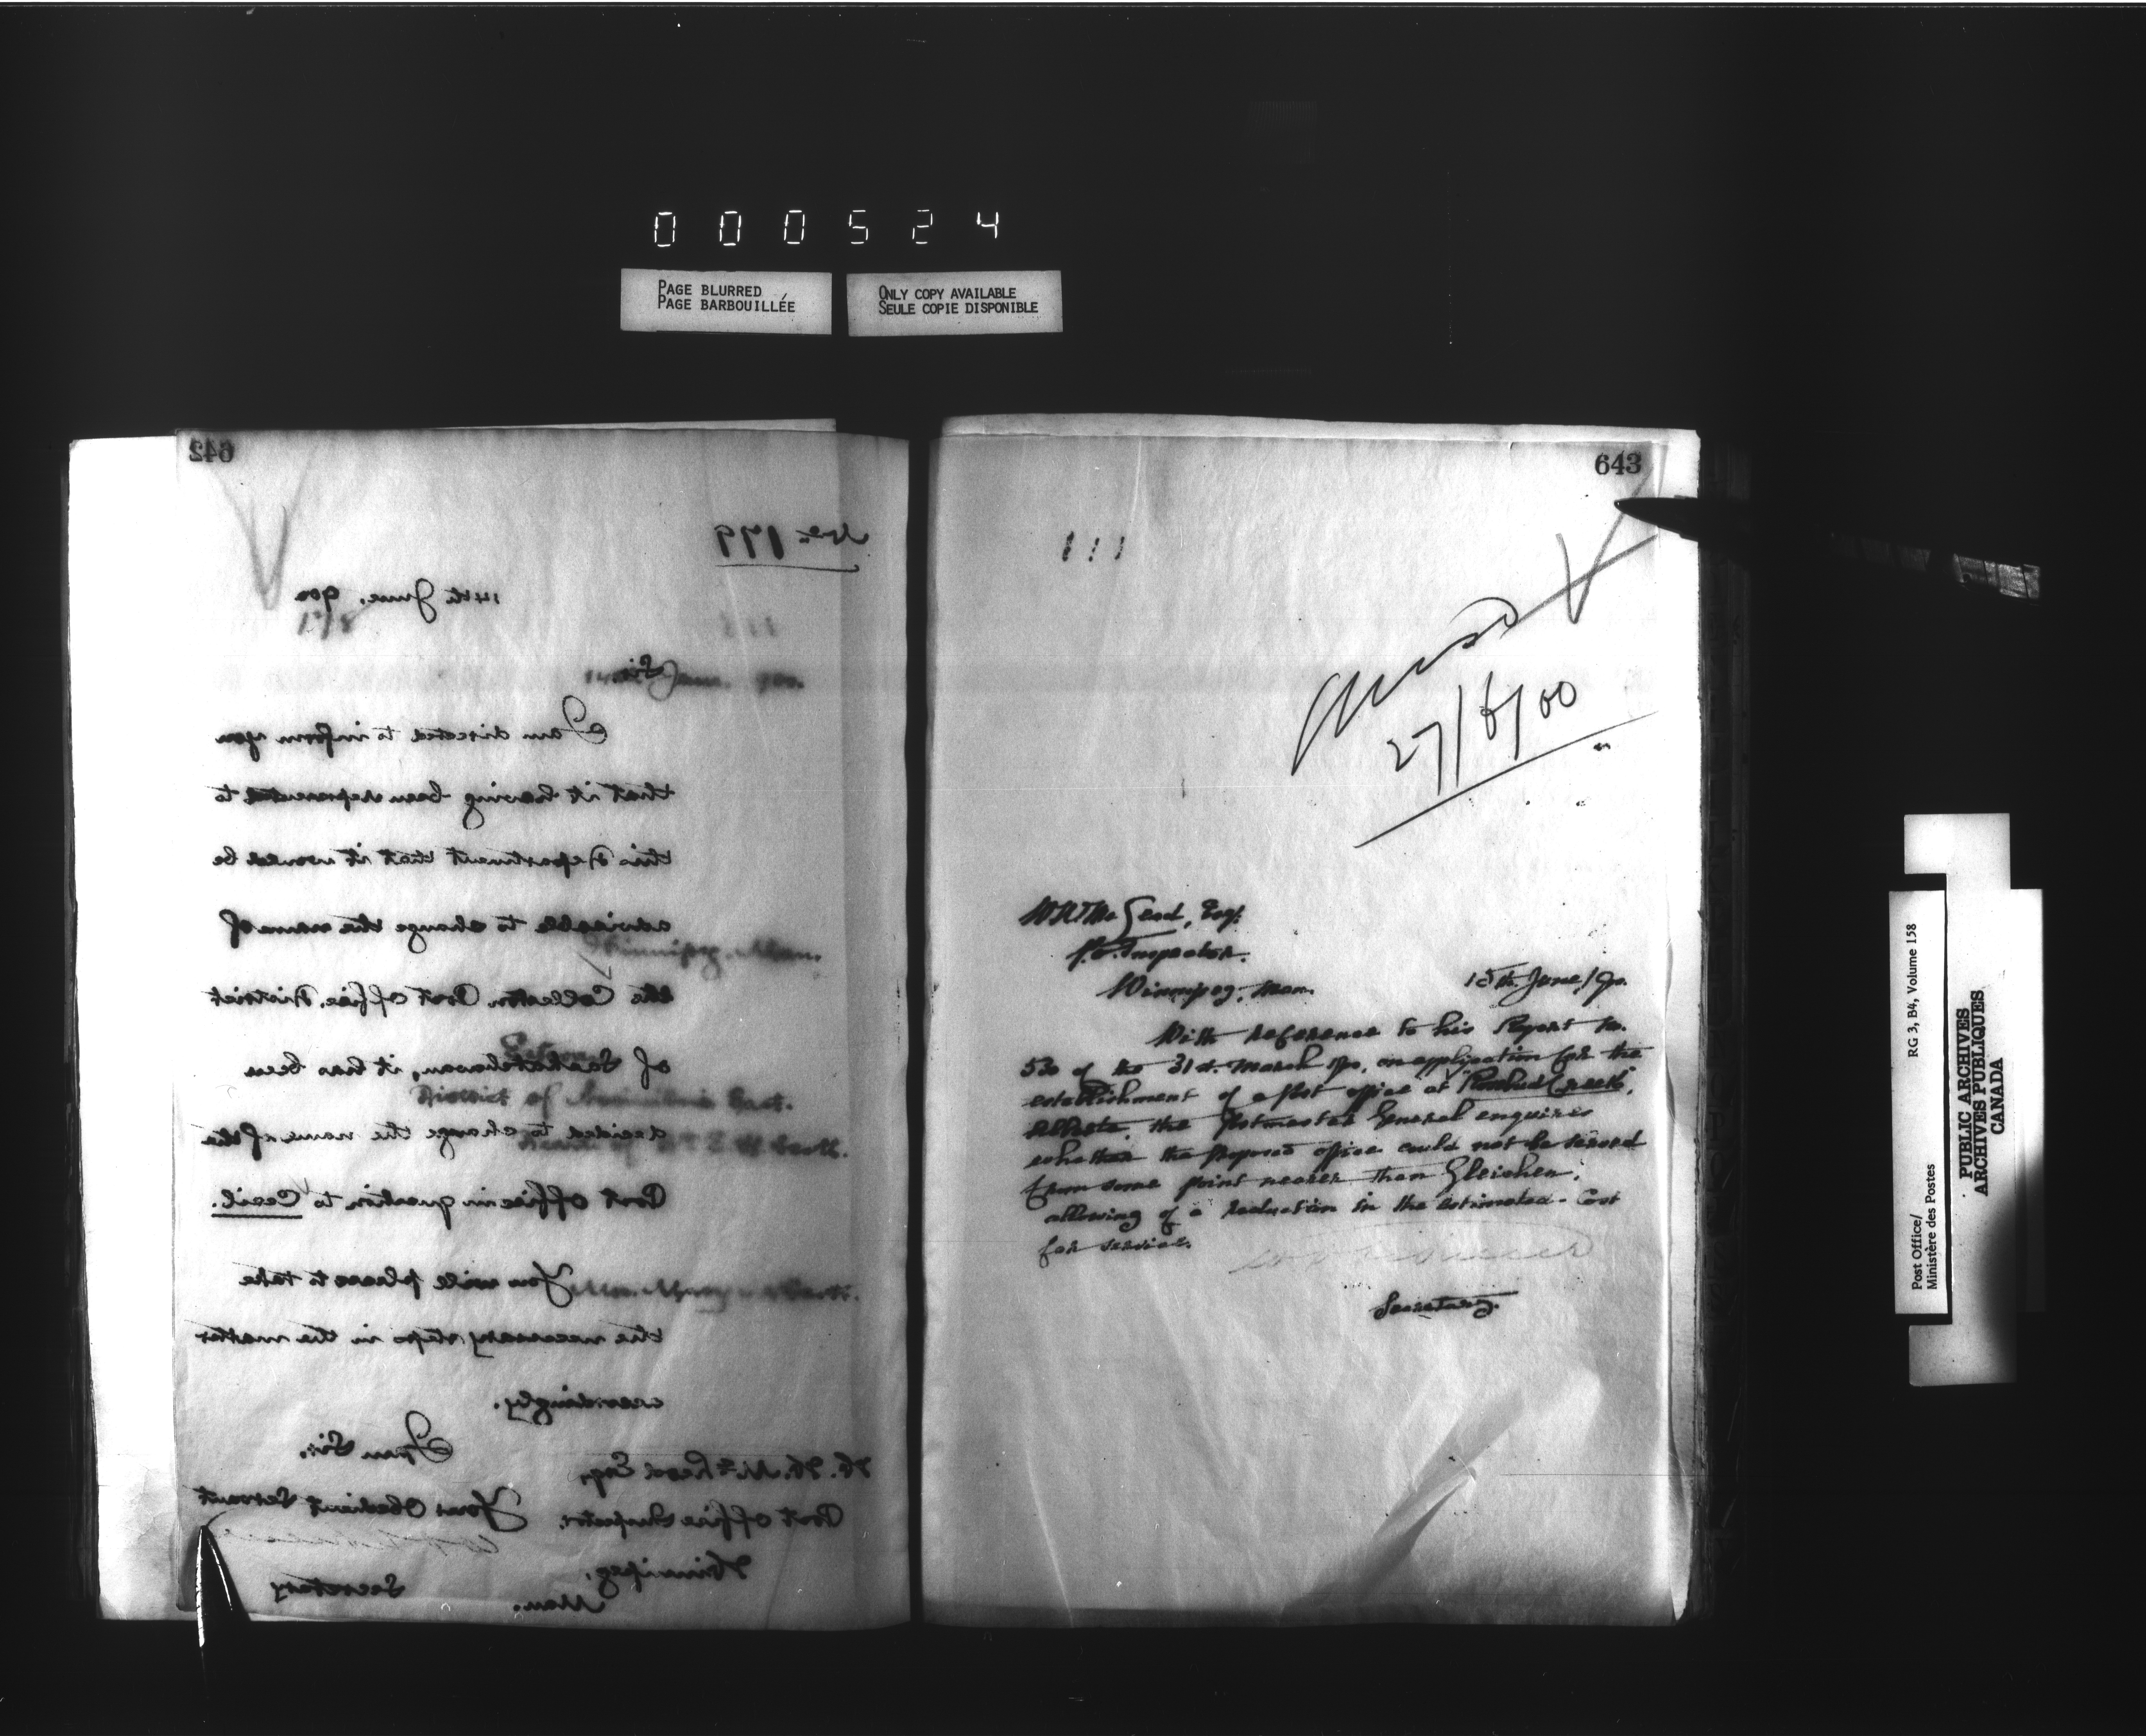 0 0 0 5 2 4
PAGE BLURRED
PAGE BARBOUILLÉE
ONLY COPY AVAILABLE
SEULE COPIE DISPONIBLE
642
No. 179
14th June, 900
Sir,
I am directed to inform you
that it having been represented to
this Department that it would be
advisable to change the name of
the Colleston Post Office, District
of Saskatchewan, it has been
decided to change the name of the
Post Office in question to Cecil.
You will please to take
the necessary steps in the matter
accordingly.
I am Sir,
Your Obedient Servant
Secretary
W. W. McLeod Esq,
Post Office Inspector,
Winnipeg,
Man.
643
27/6/00
McLeod, Esq.
P.O. Inspector.
Winnipeg, Man.
15th June/900.
With reference to his Report No.
530 of the 31st March 900, on application for the
establishment of a Post Office at Creek,
Alberta, the Postmaster General enquires
whether the proposed office could not be served
from some point nearer than Gleichen,
allowing of a reduction in the estimated cost
for service.
Secretary.
Post Office/
Ministère des Postes
RG 3, B4, Volume 158
PUBLIC ARCHIVES
ARCHIVES PUBLIQUES
CANADA